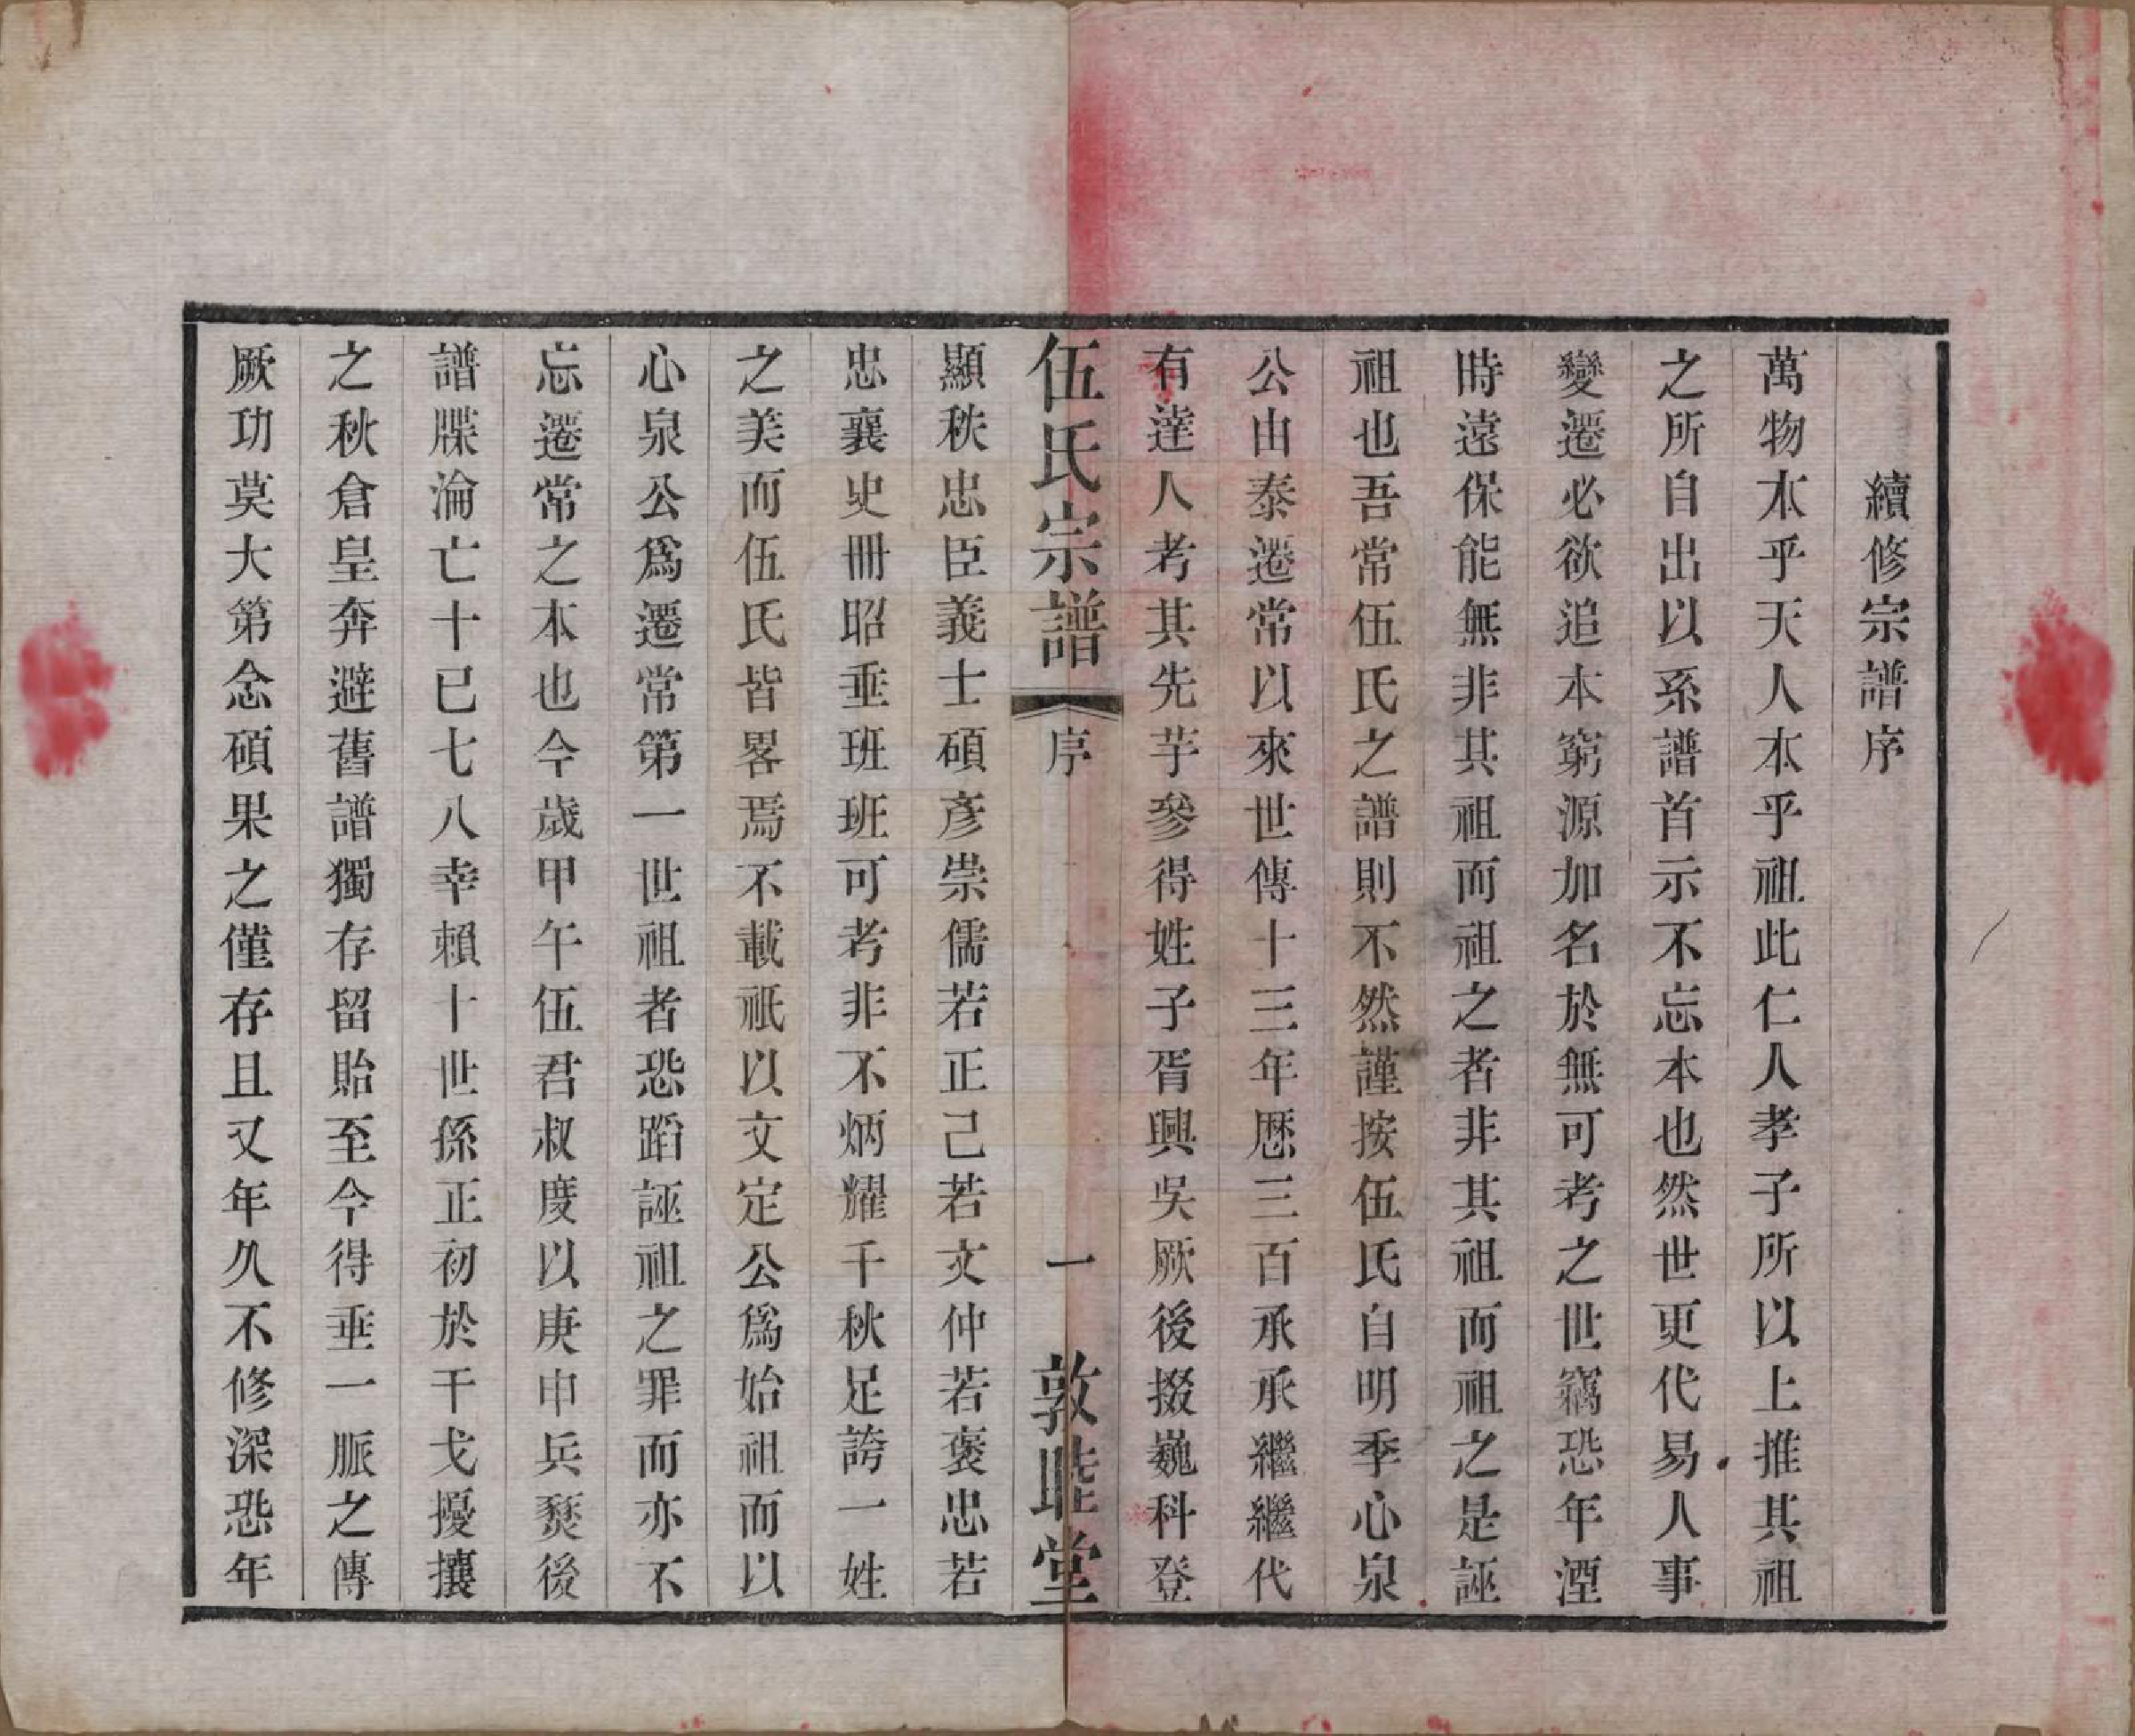 續修宗譜序
萬物本乎天人本乎祖此仁人孝子所以上推其祖
之所自出以系譜首示不忘本也然世更代易人事
變遷必欲追本窮源加名於無可考之世竊恐年湮
時遠保能無非其祖而祖之者非其祖而祖之是誣
祖也吾常伍氏之譜則不然謹按伍氏自明季心泉
公由泰遷常以來世傳十三年歷三百承承繼繼代
有達人考其先芋參得姓子胥興吳厥後掇巍科登
伍氏宗譜
序
一
敦睦堂
顯秩忠臣義士碩彥崇儒若正己若文仲若褒忠若
忠襄史冊昭垂班班可考非不炳耀千秋足誇一姓
之美而伍氏皆畧焉不載祇以文定公爲始祖而以
心泉公爲遷常第一世祖者恐蹈誣祖之罪而亦不
忘遷常之本也今歲甲午伍君叔度以庚申兵燹後
譜牒淪亡十已七八幸賴十世孫正初於干戈擾攘
之秋倉皇奔避舊譜獨存留貽至今得垂一脈之傳
厥功莫大第念碩果之僅存且又年久不修深恐年